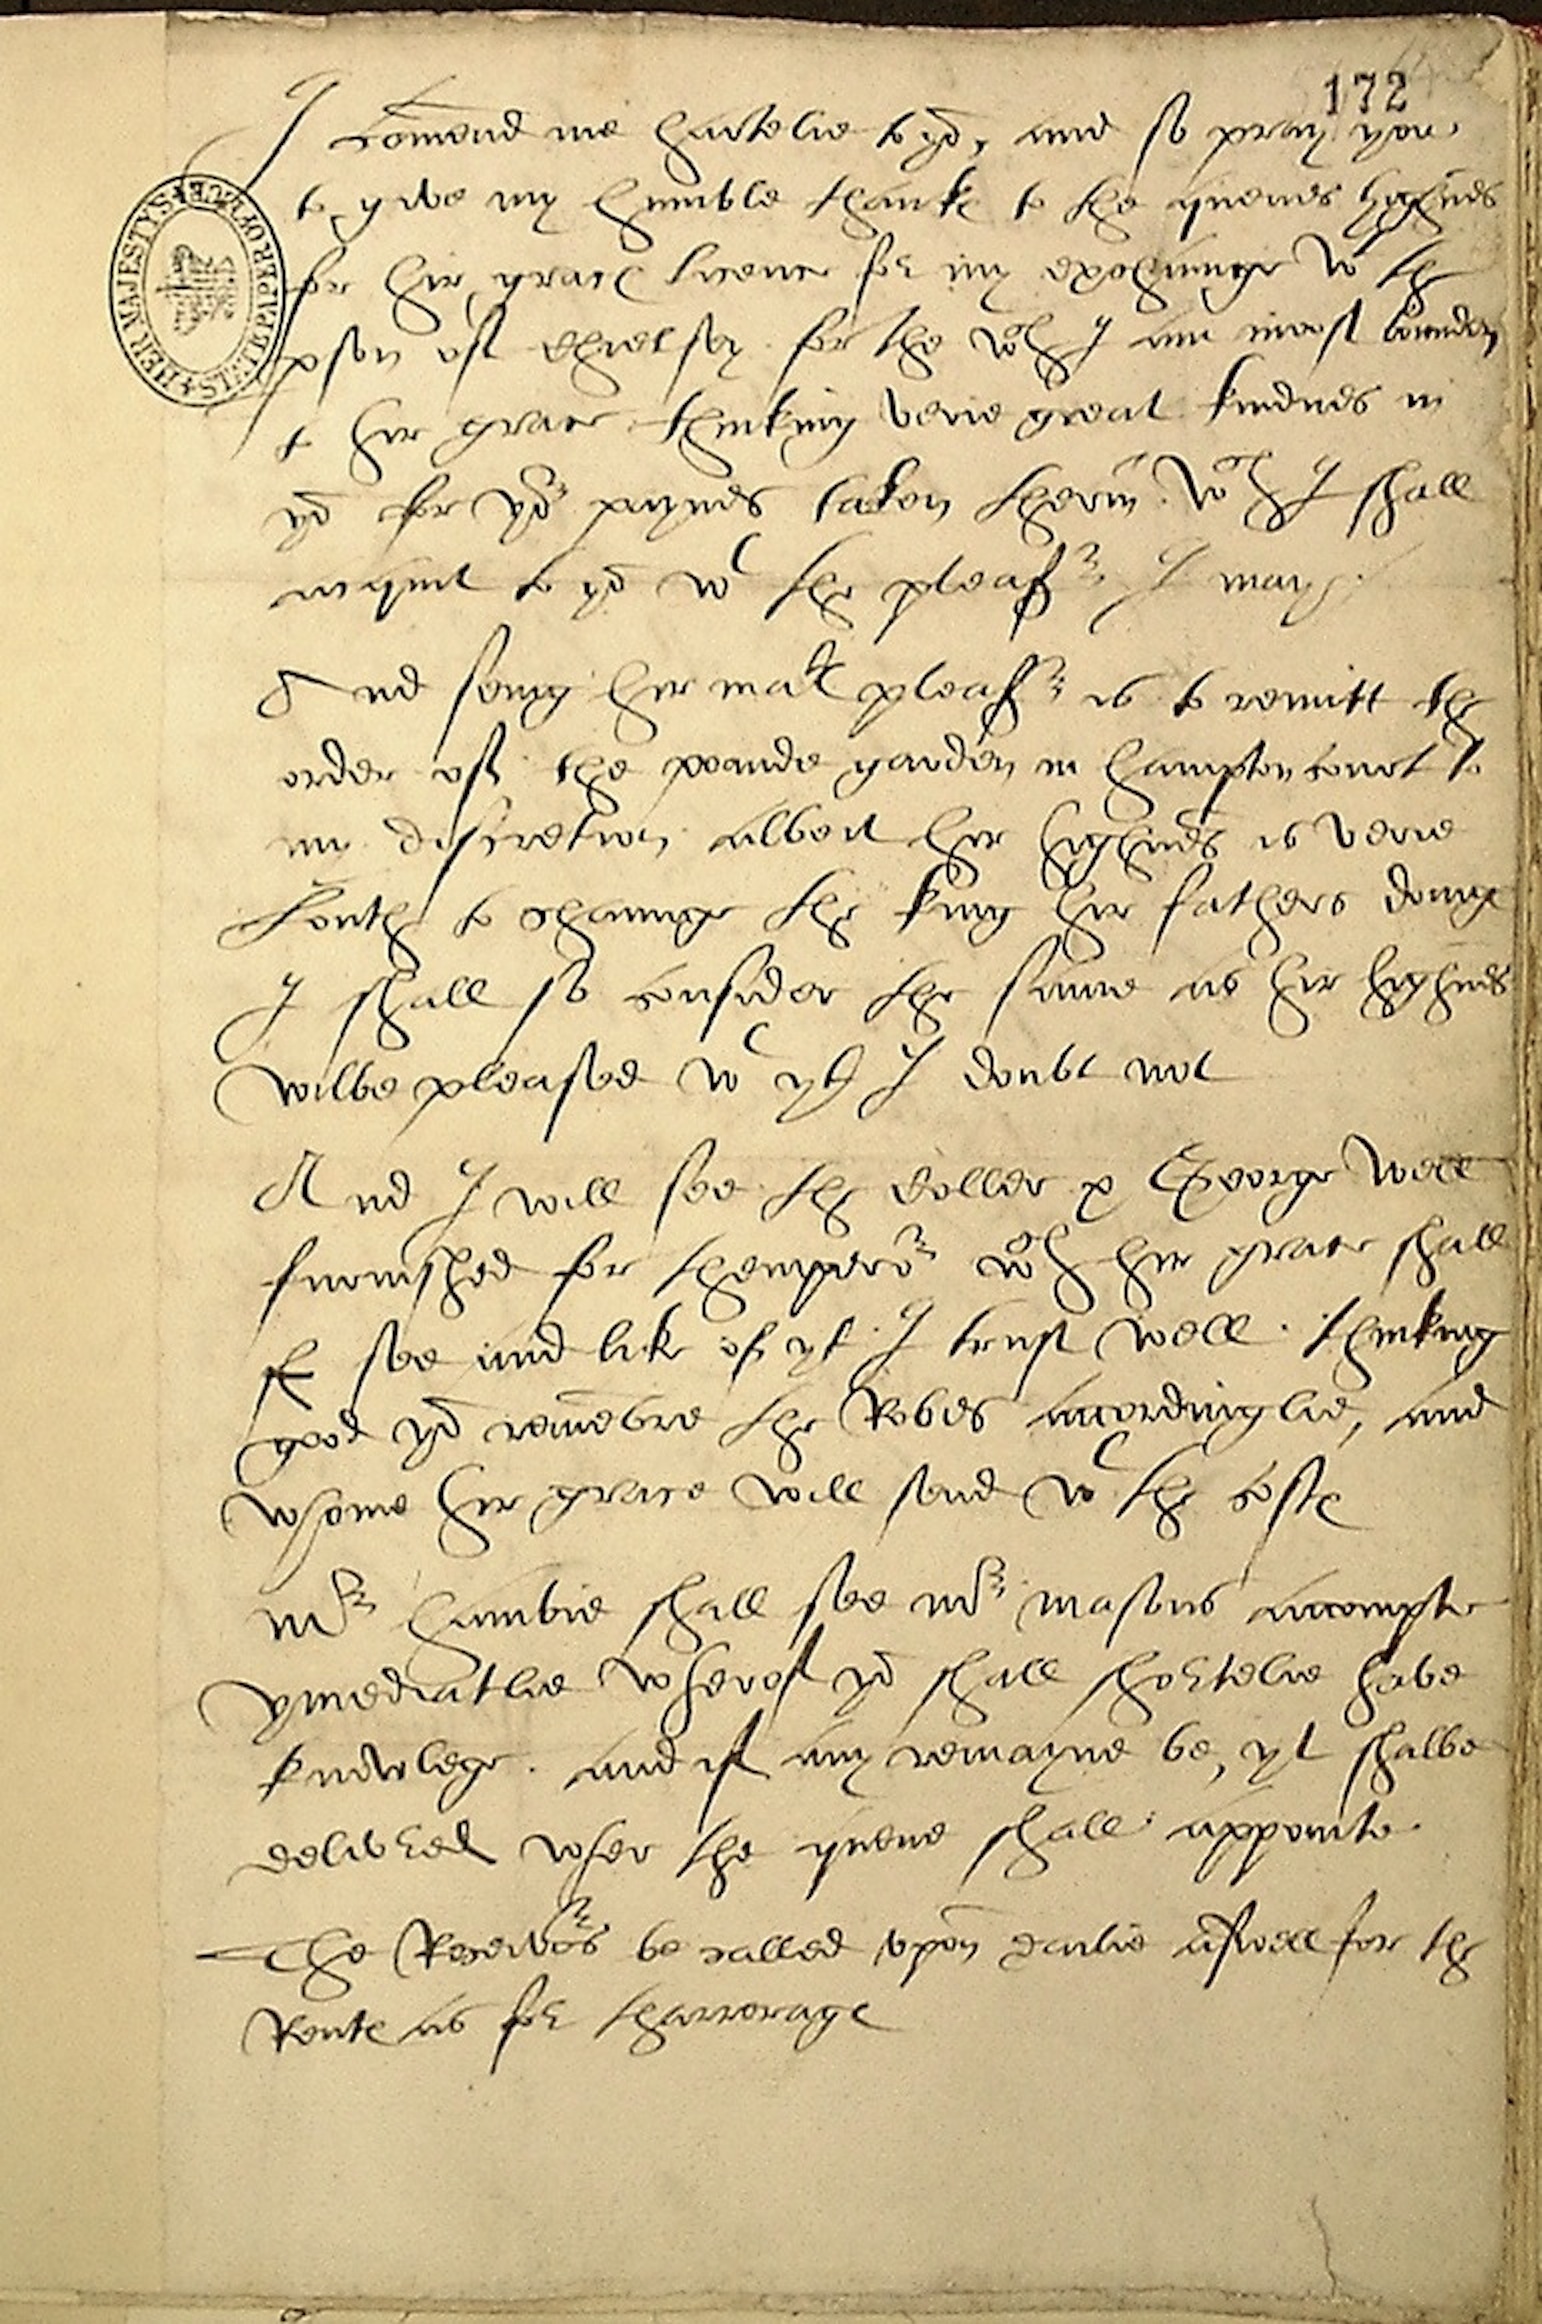 172
I com̄end me hartelie to yo͞, and so pray you
to give my humble thankℯ to the quenes highnes
for hir gracℯ licence for my exchaunge wᵗ the
pson off Chielsey for the wᶜʰ I am moost bounden
to hir grace thinking verie great kindnes in
yo͞ for yoʳ paynes taken therin̄ wᶜʰ I shall
acquit to yo͞ wᵗ the pleasʳ I may.
And seing her maᵗℯ pleasʳ is to remitt the
order off the poande garden in hampton court to
my discretion albeit her highnes is verie
Louth to chaunge the king hir fathers doingℯ
I shall so consider the same as hir highnes
wilbe pleased wᵗ yt I doubt not
And I will see the Coller & George well
furnished for themperoʳ wᶜʰ hir grace shall
see and like of yt I trust well. thinking
good yo͞ remēbre the Robes accordinglie, and
whome hir grace will send wᵗ the costℯ
Mʳ hambie shall see mʳ masons accompte
ymediatlie wheroff yo͞ shall shortelie have
knowlege. and iff any remayne be, yt shalbe
delivred wher the quene shall appointe
The Receivoʳs be called vpon̄ dailie aswell for the
Rentℯ as for tharreragℯ
HER MAJESTY'S STATE PAPER OFFICE